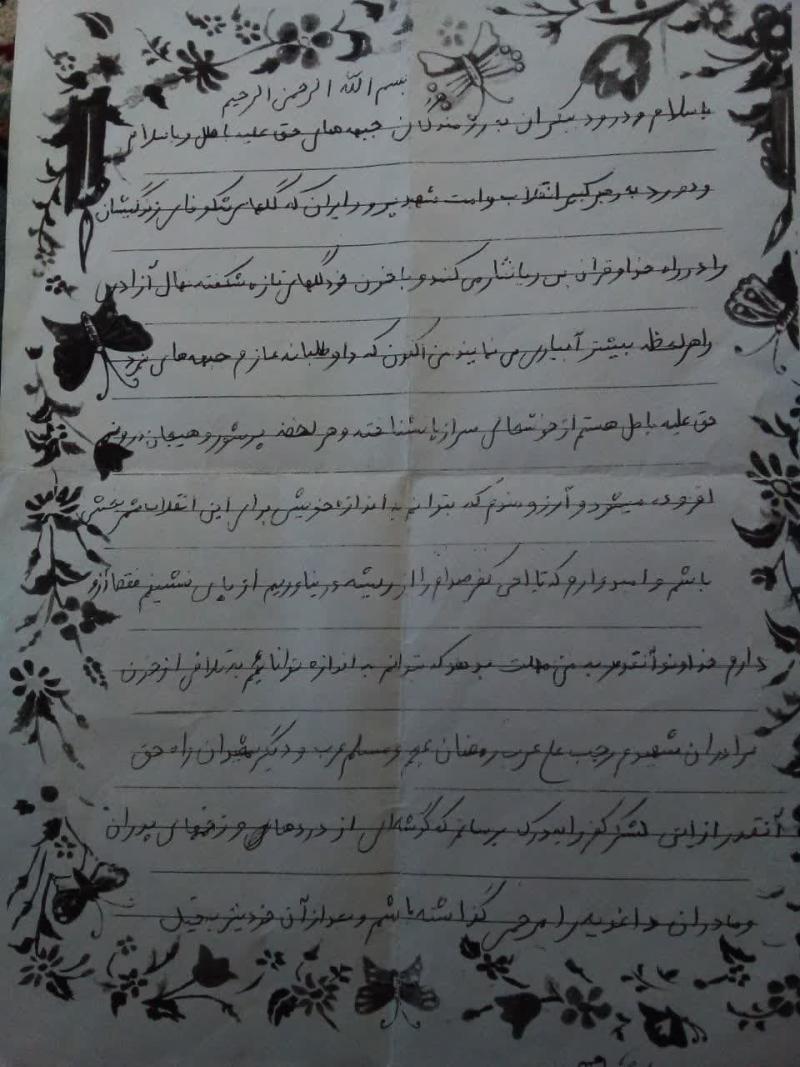 بسم الله الرحمن الرحیم
با سلام و درود بیکران به رزمندگان جبهه های حق علیه باطل و با سلام
و درود به رهبر کبیر انقلاب و امت شهید پرور ایران که گلهای شکوفای زندگیشان
را در راه خدا و قران بی ریا نثار می کنند و با خون خود گلهای تازه شکفته نهال آزادی
را هر لحظه بیشتر آبیاری می نمایند من اکنون که داوطلبانه عازم جبهه های نبرد
حق علیه باطل هستم از خوشحالی سر از پا نشناخته و هر لحظه پرشور و هیجان درونی
افزوده میشود و آرزومندم که بتوانم به اندازه خویش برای این انقلاب ثمربخش
باشم و امیدوارم که تا این کفر صدام را از ریشه در نیاوریم از پای ننشینیم فقط آرزو
دارم خداوند آنقدر به من مهلت بدهد که بتوانم به اندازه توانائیم به تلافی از خون
برادران شهیدم رجب علی عرب رمضان عجم و مسلم عرب و دیگر شهیدان راه حق
آنقدر از این لشکر کفر را به درک برسانم که گوشه ای از دردهای و زخمهای پدران
و مادران داغدیده را مرحمی گذاشته باشم و بعد از آن خود نیز به خیل